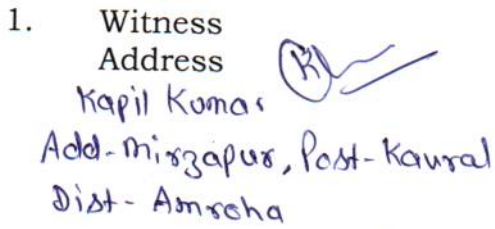 1. Witness
Address
Kapil Kumar
Add - Mirzapur, Post - Kaural
Dist - Amroha